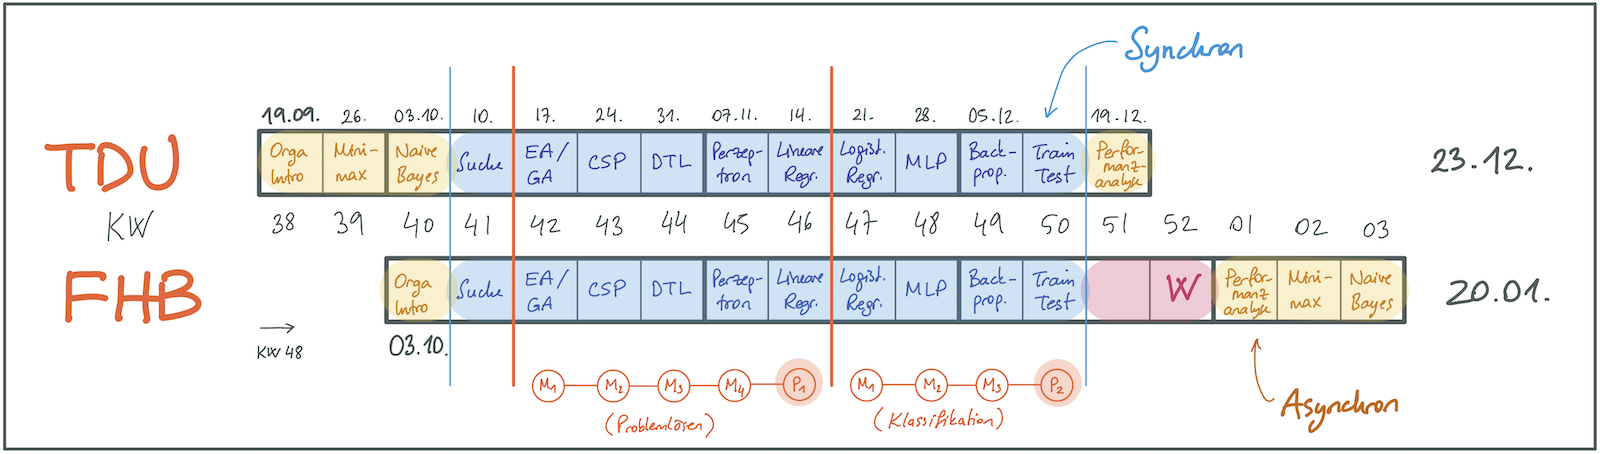 Synchron
19.09. 26. 03.10. 10. 17. 24. 31. 07.11. 14. 21. 28. 05.12. 19.12.
TDU
Orga Intro
Mini-max
Naive Bayes
Suche
EA/ GA
CSP
DTL
Perzep-tron
Lineare Regr.
Logist. Regr.
MLP
Back-prop.
Train Test
Perfor-manz-analyse
23.12.
KW 38 39 40 41 42 43 44 45 46 47 48 49 50 51 52 01 02 03
FHB
Orga Intro
Suche
EA/ GA
CSP
DTL
Perzep-tron
Lineare Regr.
Logist. Regr.
MLP
Back-prop.
Train Test
W
Perfor-manz analyse
Mini-max
Naive Bayes
20.01.
KW 48
03.10.
M1 M2 M3 M4 P1
(Problemlösen)
M1 M2 M3 P2
(Klassifikation)
Asynchron